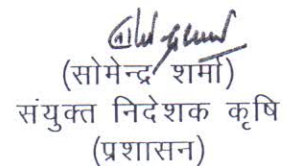 (सोमेन्द्र शर्मा)
संयुक्त निदेशक कृषि
(प्रशासन)